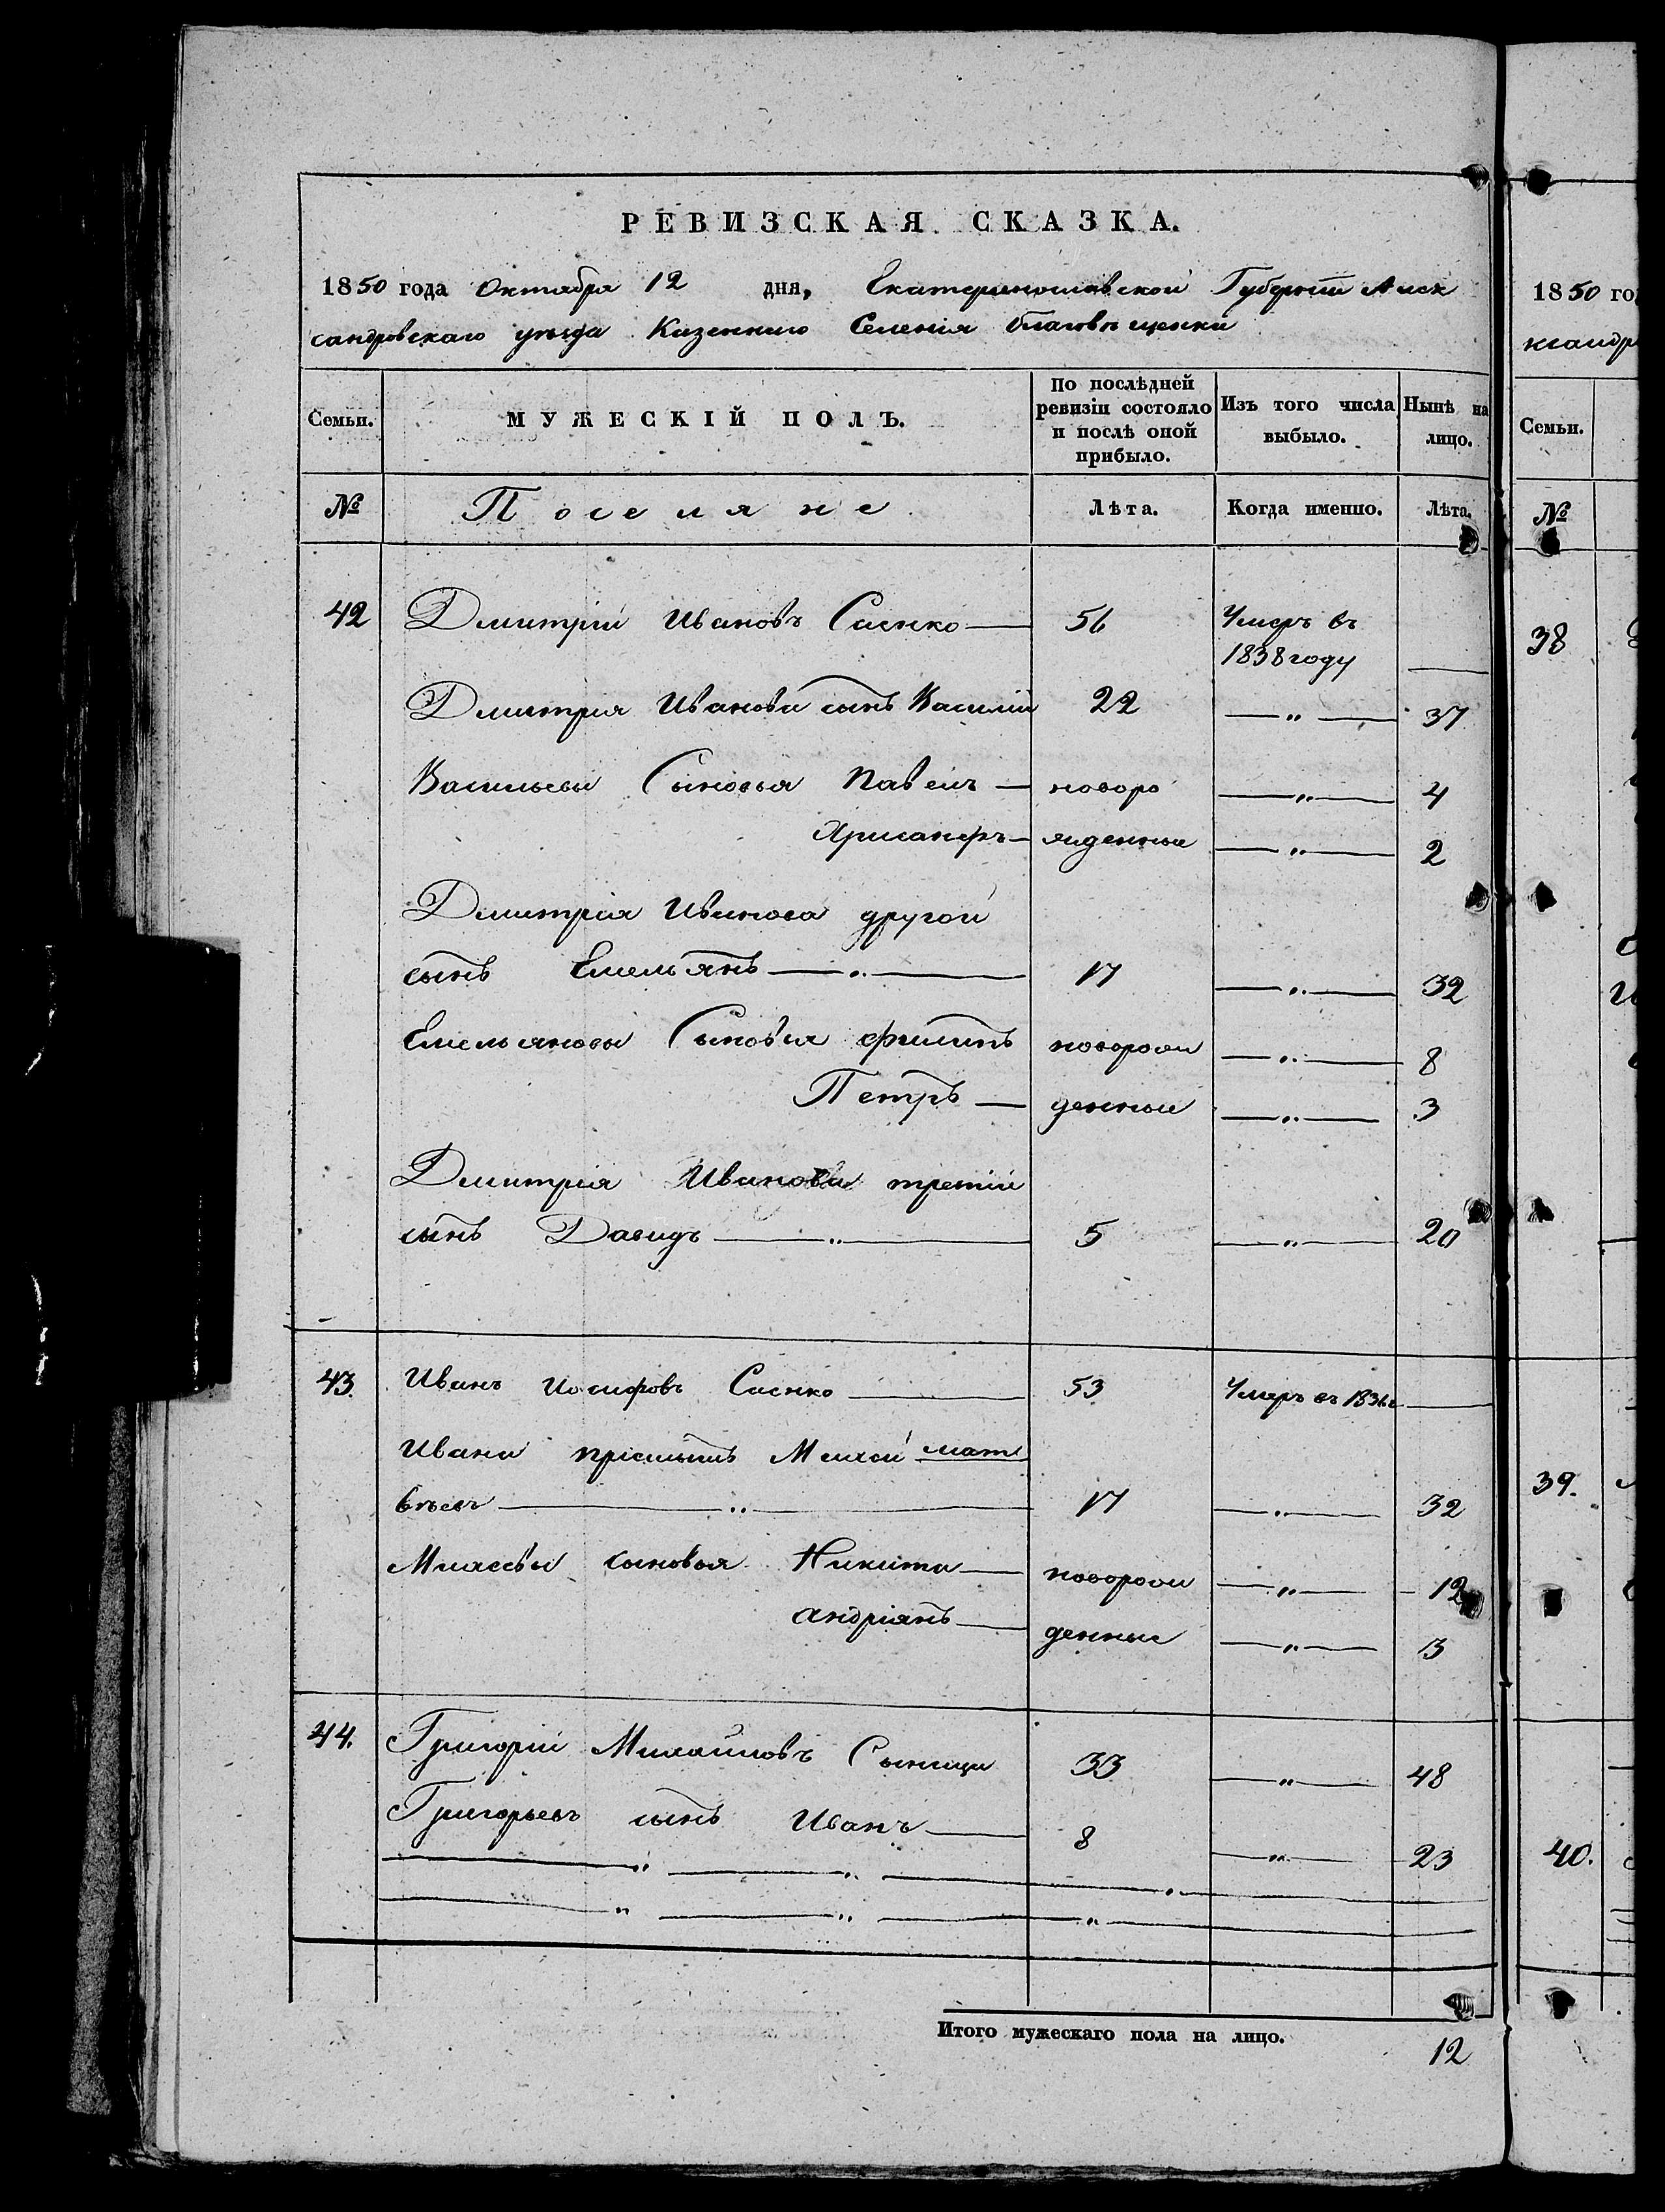 РЕВИЗСКАЯ СКАЗКА.
1850 года Октября 12 дня, Екатеринославской Губерніи Алек
сандровскаго уѣзда Казеннаго Селенія Благовѣщенки
Семьи.
МУЖЕСКІЙ ПОЛЪ.
По послѣдней ревизіи состояло и послѣ оной прибыло.
Изъ того числа выбыло.
Нынѣ на лицо.
№
Поселяне
Лѣта.
Когда именно.
Лѣта.
42 Дмитрій Ивановъ Саенко — 56 Умеръ въ
1838 году —
Дмитрія Иванова сынъ Василій 22 — " — 37
Васильевы Сыновья Павелъ — новоро — " — 4
Хрисанфъ — жденные — " — 2
Дмитрія Иванова другой
сынъ Емельянъ — " — 17 — " — 32
Емельяновы Сыновья Филипъ новорож — " — 8
Петръ — денные — " — 3
Дмитрія Иванова третій
сынъ Давидъ — " — 5 — " — 20
43. Иванъ Иосифовъ Саенко — 53 Умеръ въ 1836 г —
Ивана пріемышъ Михей мат
вѣевъ — " — 17 — " — 32
Михеевы сыновья Никита — новорож — " — 12
Андріянъ — денные — " — 3
44. Григорій Михайловъ Сыница 33 — " — 48
Григорьевъ сынъ Иванъ — 8 — " — 23
Итого мужескаго пола на лицо.
12
1850 го
ксандр
Семьи.
№
38
39.
40.